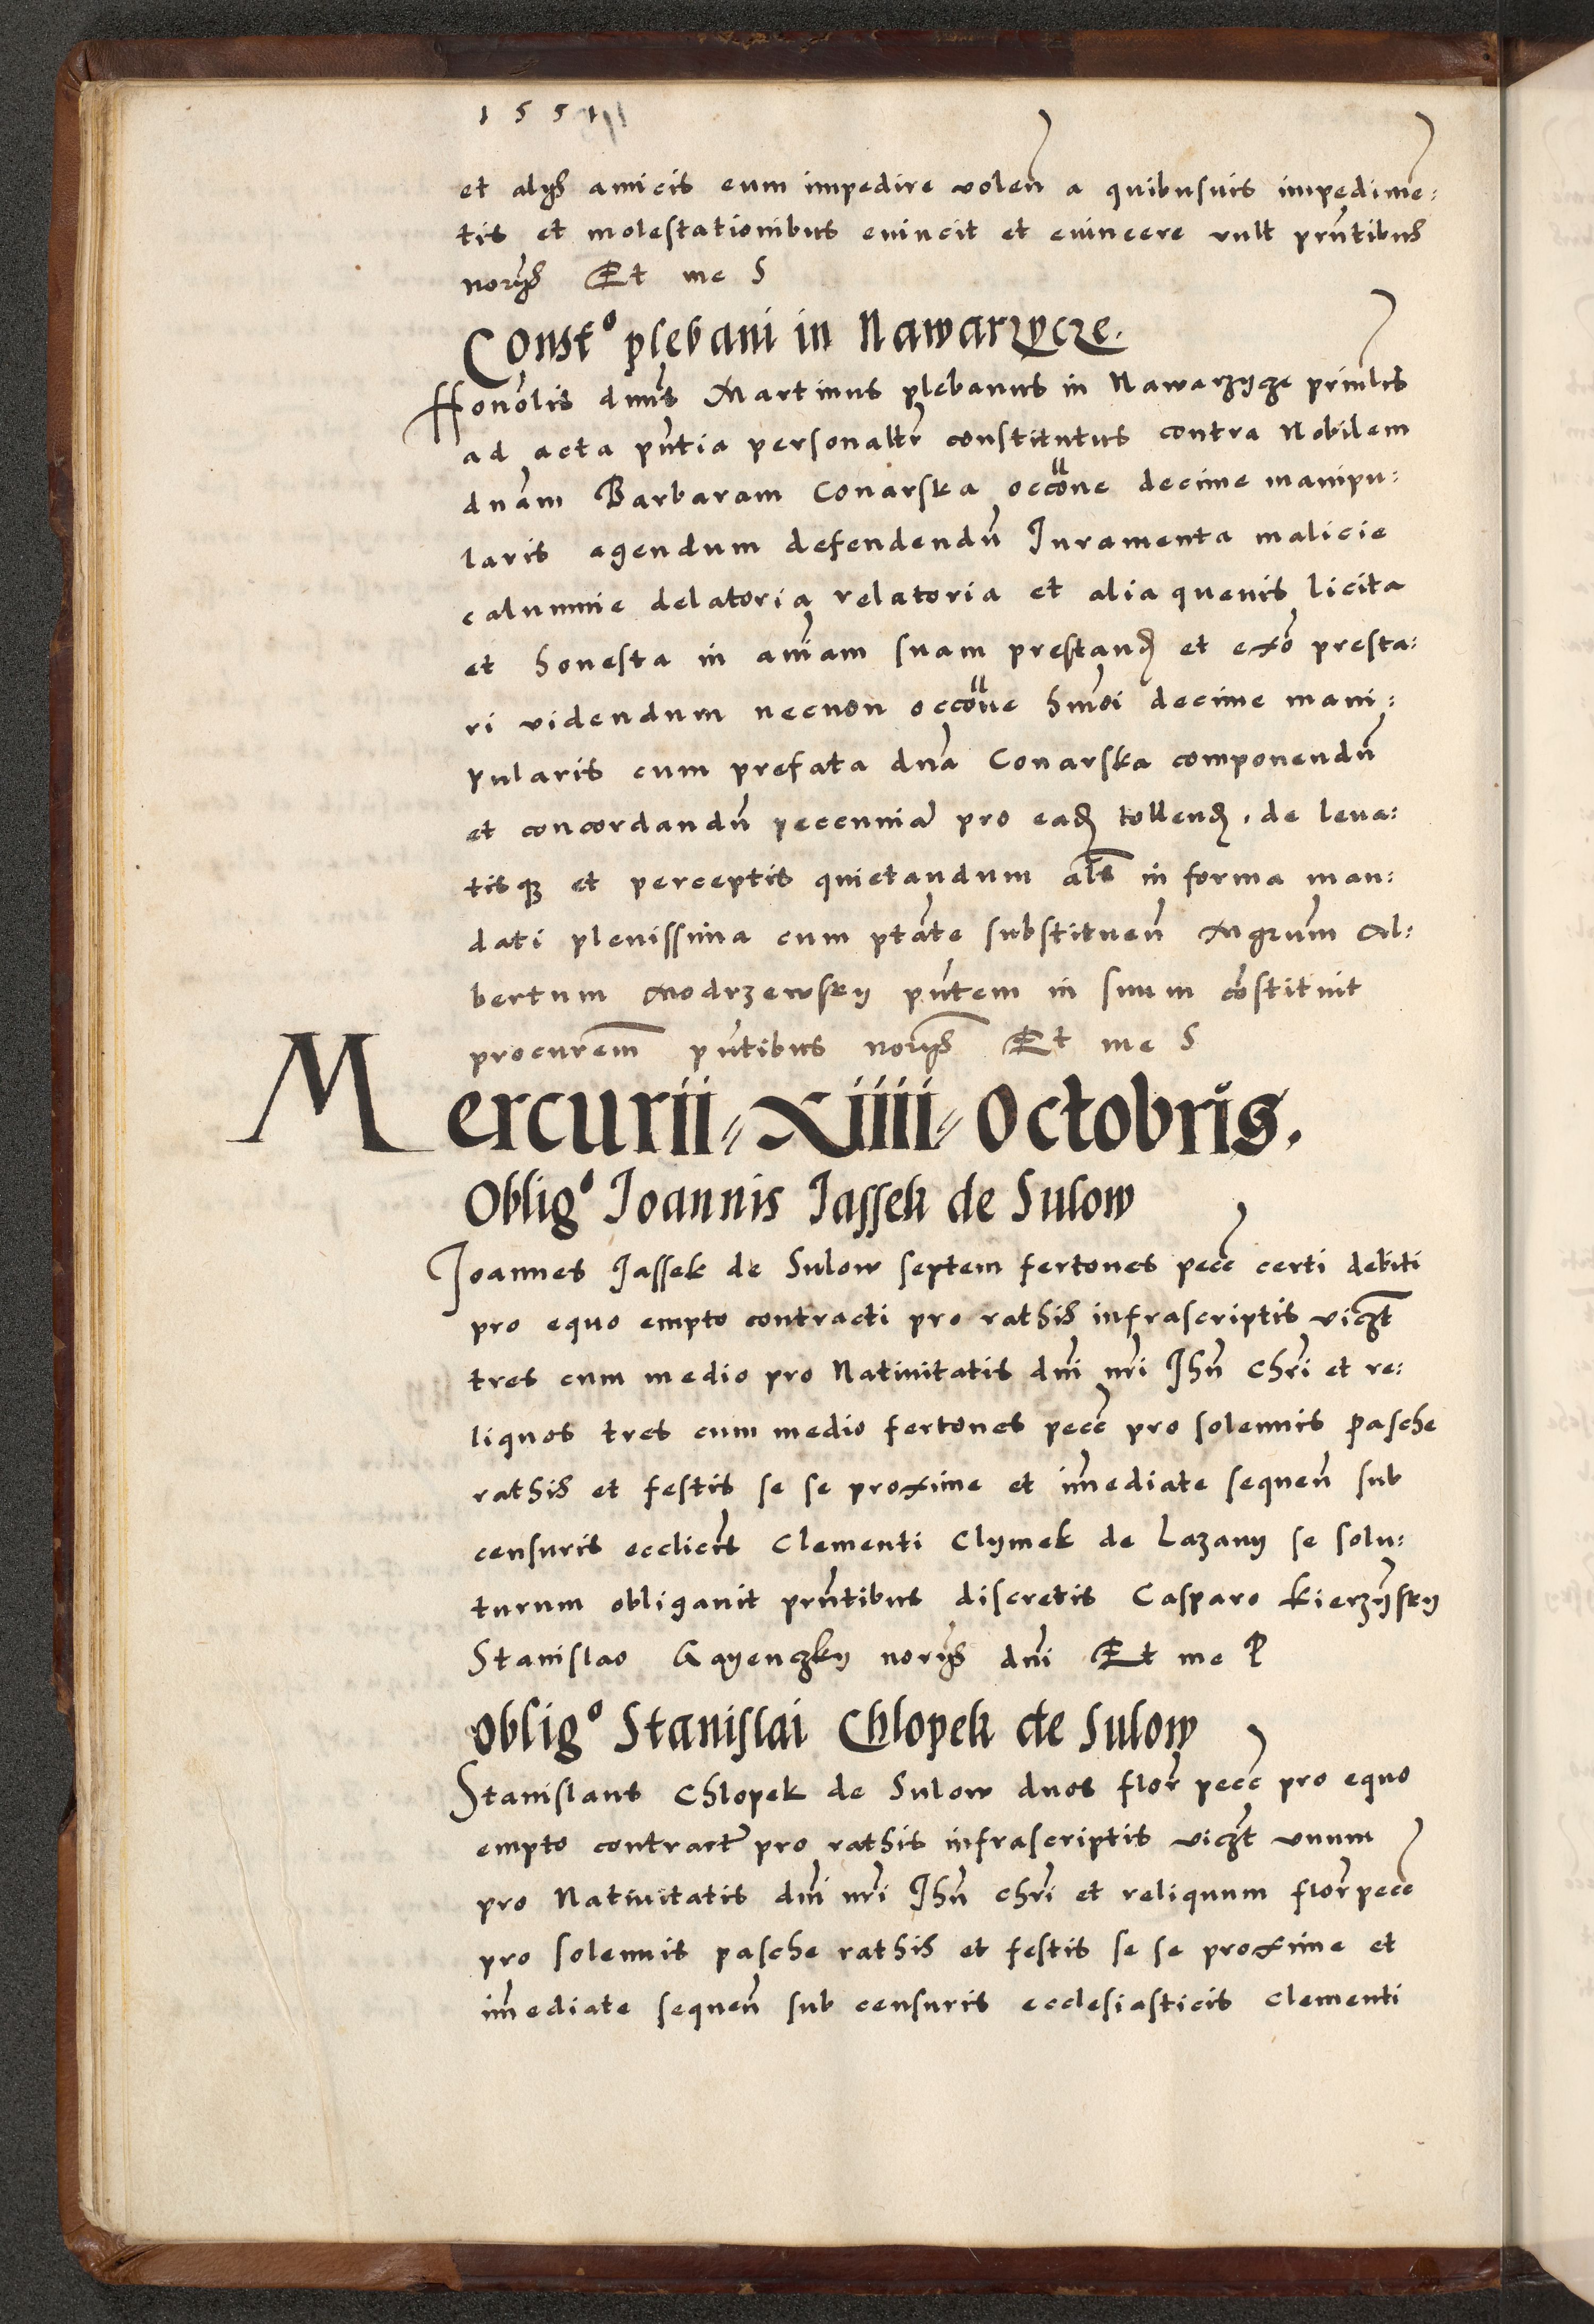 1551
et alijs amicis eum impedire volen̄ a quibusuis impedime:
tis et molestationibus euincit et euincere vult prn̄tibus
norijs Et me S
Constᵒ plebani in Nawarzycze.
Honōlis dnūs Martinus plebanus in Nawarzycze prinlis
ad acta pn̄tia personalr̄ constitutus contra Nobilem
dnām Barbaram Conarska occōne decime manipu:
laris agendum defendendū Iuramenta malicie
calumnie delatoria relatoria et alia queuis licita
et honesta in aīam suam prestand et exō presta:
ri videndum necnon occōne hmōi decime mani:
pularis cum prefata dnā Conarska componendū
et concordandū pecunniā pro ead tollend, de leua:
tisq et perceptis quietandum als̄ in forma man:
dati plenissima cum ptāte substituen̄ Mgrūm Al:
bertum Modrzewsky pn̄tem in suum cōstituit
procurēm pn̄tibus norijs Et me S
Mercurii Xiiii Octobris.
Obligᵒ Ioannis Jassek de Sulow
Ioannes Jassek de Sulow septem fertones pecc̄ certi debiti
pro equo empto contracti pro rathis infrascriptis viczt̄
tres cum medio pro Natiuitatis dnī nrī Ihū Chrī et re:
liquos tres cum medio fertones pecc̄ pro solennis Pasche
rathis et festis se se proxime et im̄ediate sequen̄ sub
censuris ecclicīs Clementi Clymek de Lazany se solu:
turum obligauit prn̄tibus discretis Casparo Kierzynsky
Stanislao Gayenczky norijs dnī Et me P
Obligᵒ Stanislai Chlopek de Sulow
Stanislaus Chlopek de Sulow duos flor̄ pecc̄ pro equo
empto contract̄ pro rathis infrascriptis viczt̄ vnum
pro Natiuitatis dnī nrī Ihū chrī et reliquum flor̄ pecc̄
pro solennis pasche rathis et festis se se proxime et
im̄ediate sequen̄ sub censuris ecclesiasticis Clementi